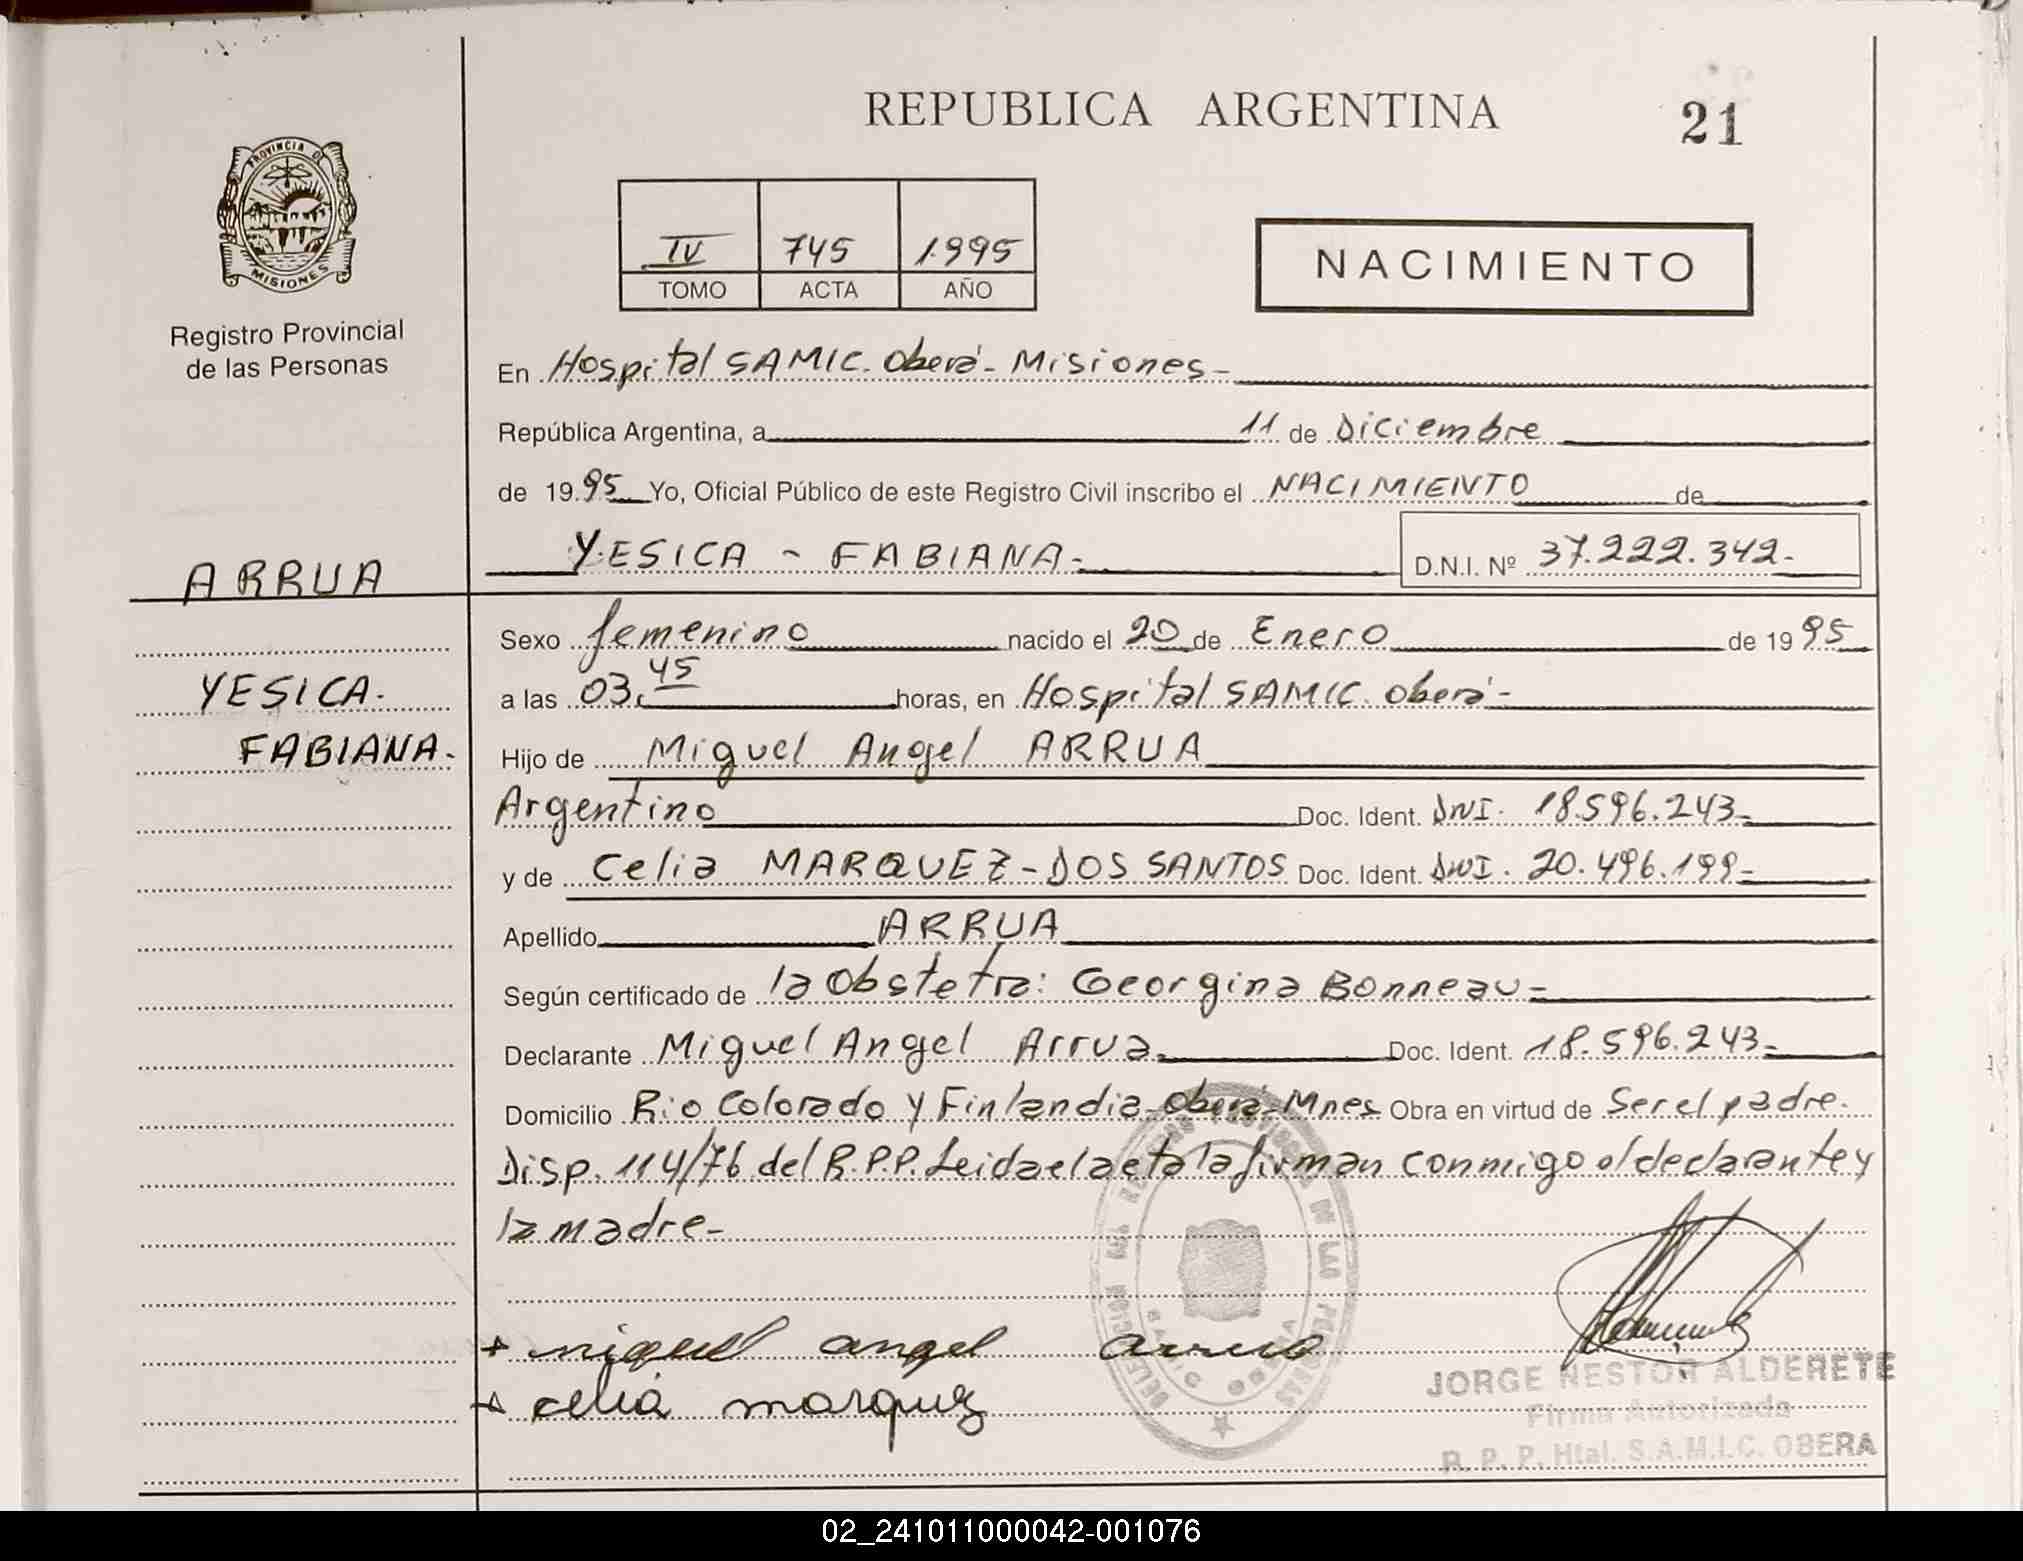 REPUBLICA ARGENTINA
21
PROVINCIA DE
MISIONES
Registro Provincial
de las Personas
IV 745 1.995
TOMO ACTA AÑO
NACIMIENTO
En Hospital SAMIC. Oberá- Misiones-
República Argentina, a 11 de Diciembre
de 19.95 Yo, Oficial Público de este Registro Civil inscribo el NACIMIENTO de
YESICA - FABIANA- D.N.I. Nº 37.222.342-
ARRUA
YESICA.
FABIANA.
Sexo femenino nacido el 20 de Enero de 1995
a las 03.45 horas, en Hospital SAMIC. Oberá-
Hijo de Miguel Angel ARRUA
Argentino Doc. Ident. DNI. 18.596.243-
y de Celia MARQUEZ-DOS SANTOS Doc. Ident. DNI. 20.496.199-
Apellido ARRUA
Según certificado de la Obstetra: Georgina Bonneau-
Declarante Miguel Angel Arrua. Doc. Ident. 18.596.243-
Domicilio Rio Colorado y Finlandia-Oberá-Mnes Obra en virtud de Ser el padre.
Disp. 114/76 del R.P.P. Leida el acta la firman conmigo el declarante y
la madre-
+ miguel angel arrua
+ celia marquez
JORGE NESTOR ALDERETE
Firma Autorizada
R. P. P. Htal. S.A.M.I.C. OBERA
02_241011000042-001076